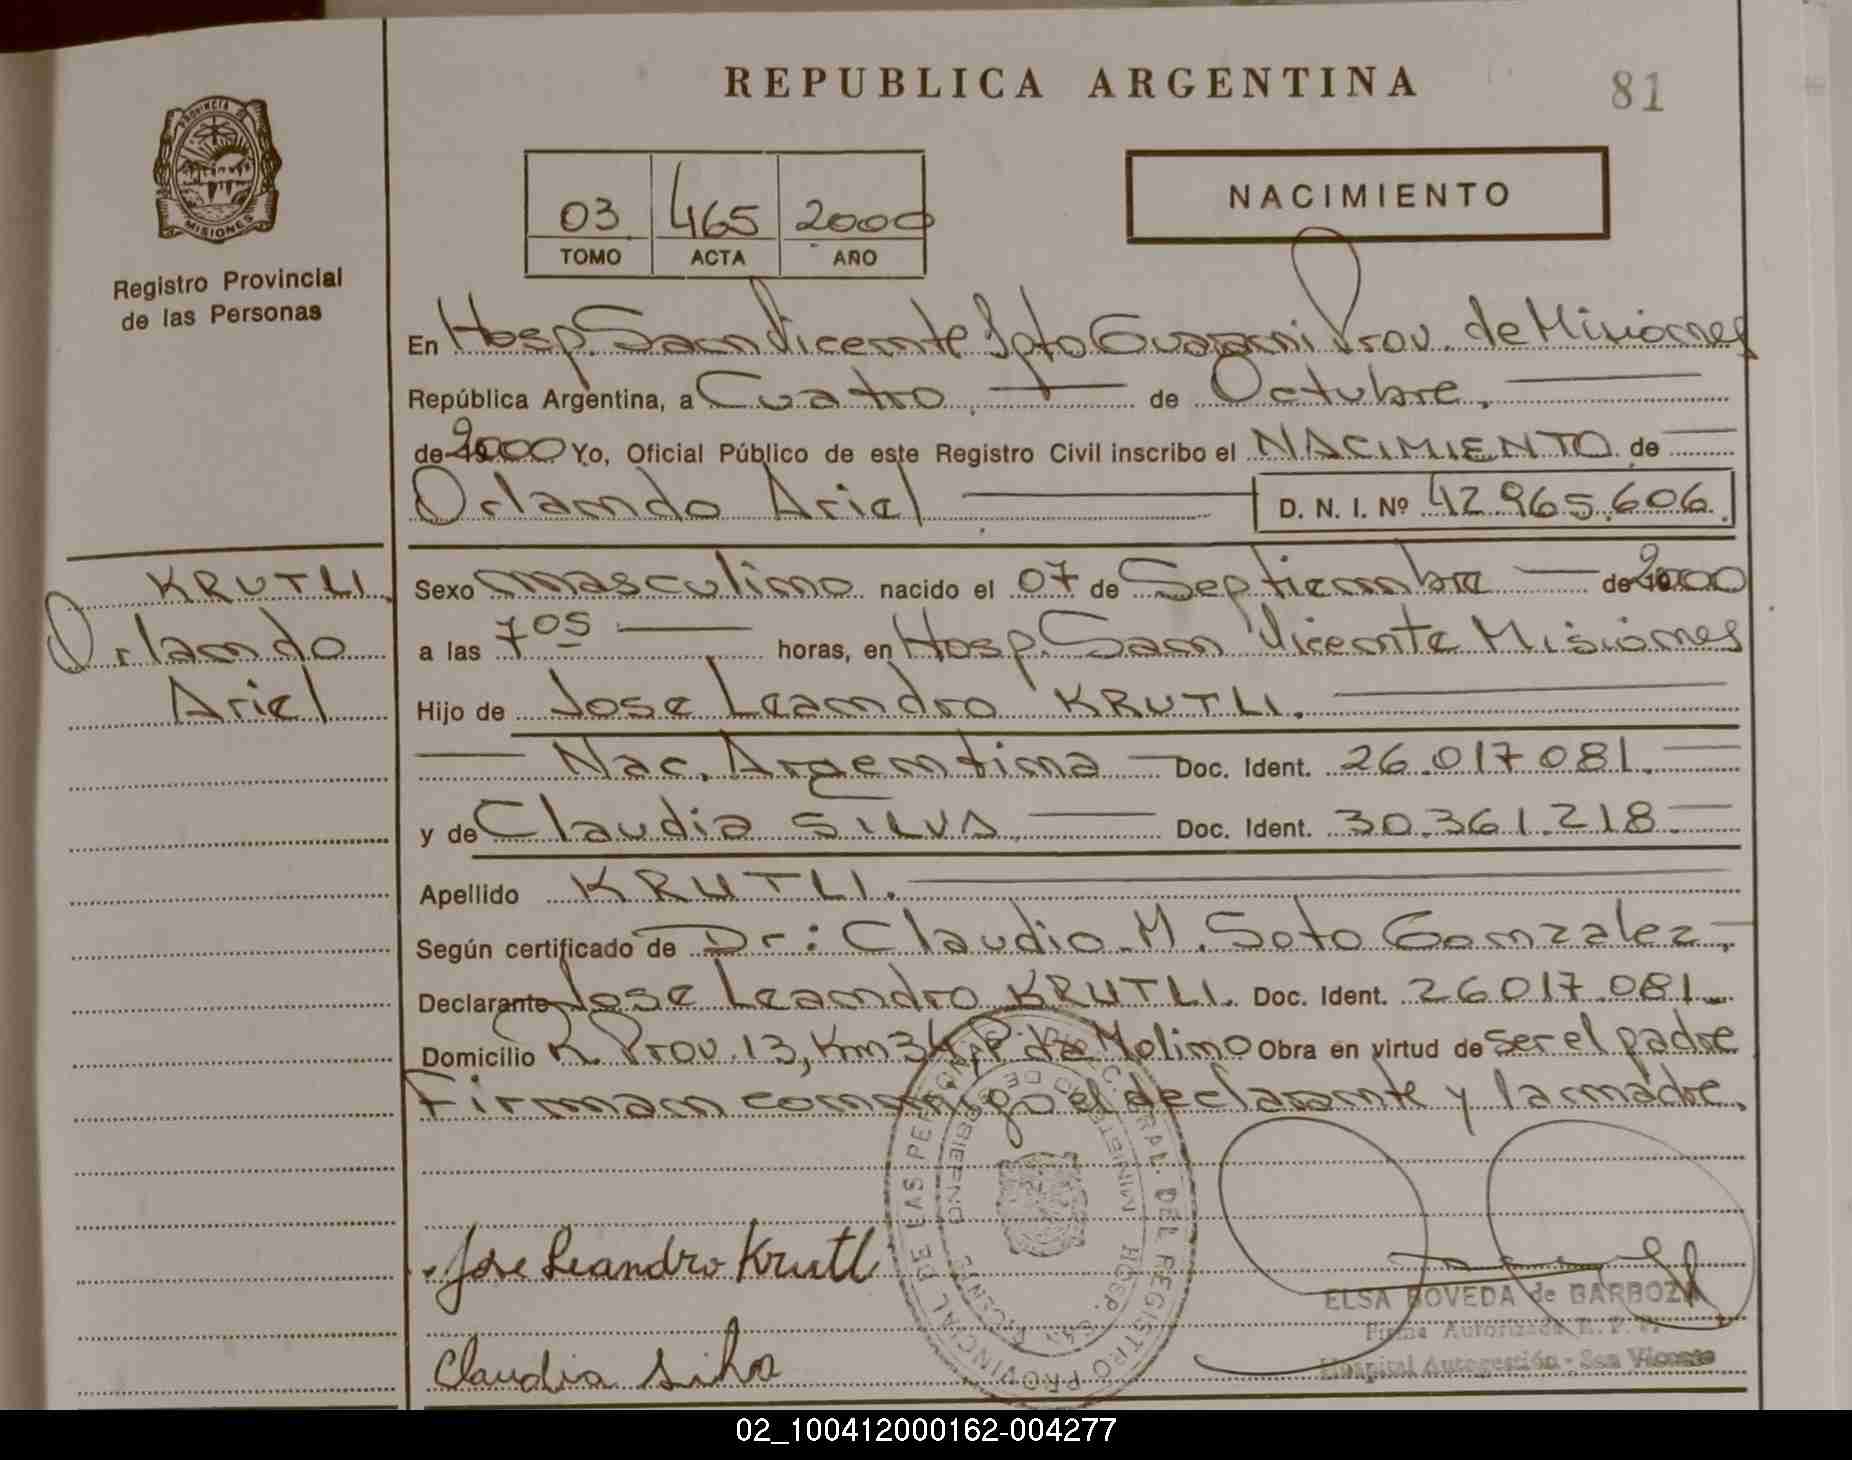 REPUBLICA ARGENTINA
81
PROVINCIA DE
MISIONES
Registro Provincial
de las Personas
03 465 2000
TOMO ACTA AÑO
NACIMIENTO
En Hosp. San Vicente Dpto Guarani Prov. de Misiones
República Argentina, a Cuatro de Octubre.
de 2000 Yo, Oficial Público de este Registro Civil inscribo el NACIMIENTO de
Orlando Ariel D. N. I. Nº 42.965.606.
KRUTLI
Orlando
Ariel
Sexo masculino nacido el 07 de Septiembre de 2000
a las 7 05 horas, en Hosp. San Vicente Misiones
Hijo de Jose Leandro KRUTLI.
Nac. Argentina Doc. Ident. 26.017.081.
y de Claudia SILVA Doc. Ident. 30.361.218
Apellido KRUTLI.
Según certificado de Dr: Claudio M. Soto Gonzalez.
Declarante Jose Leandro KRUTLI. Doc. Ident. 26.017.081
Domicilio R. Prov. 13, Km 34, P. de Molino Obra en virtud de ser el padre
Firman conmigo el declarante y la madre.
Jose Leandro Krutl
Claudia Silva
PROVINCIAL DE LAS PERSONAS
GRAL. DEL REGISTRO
MINISTERIO DE GOBIERNO
HOSP. SAN VICENTE
ELSA BOVEDA de BARBOZA
Firma Autorizada R. P. P.
Hospital Autogestión - San Vicente
02_100412000162-004277